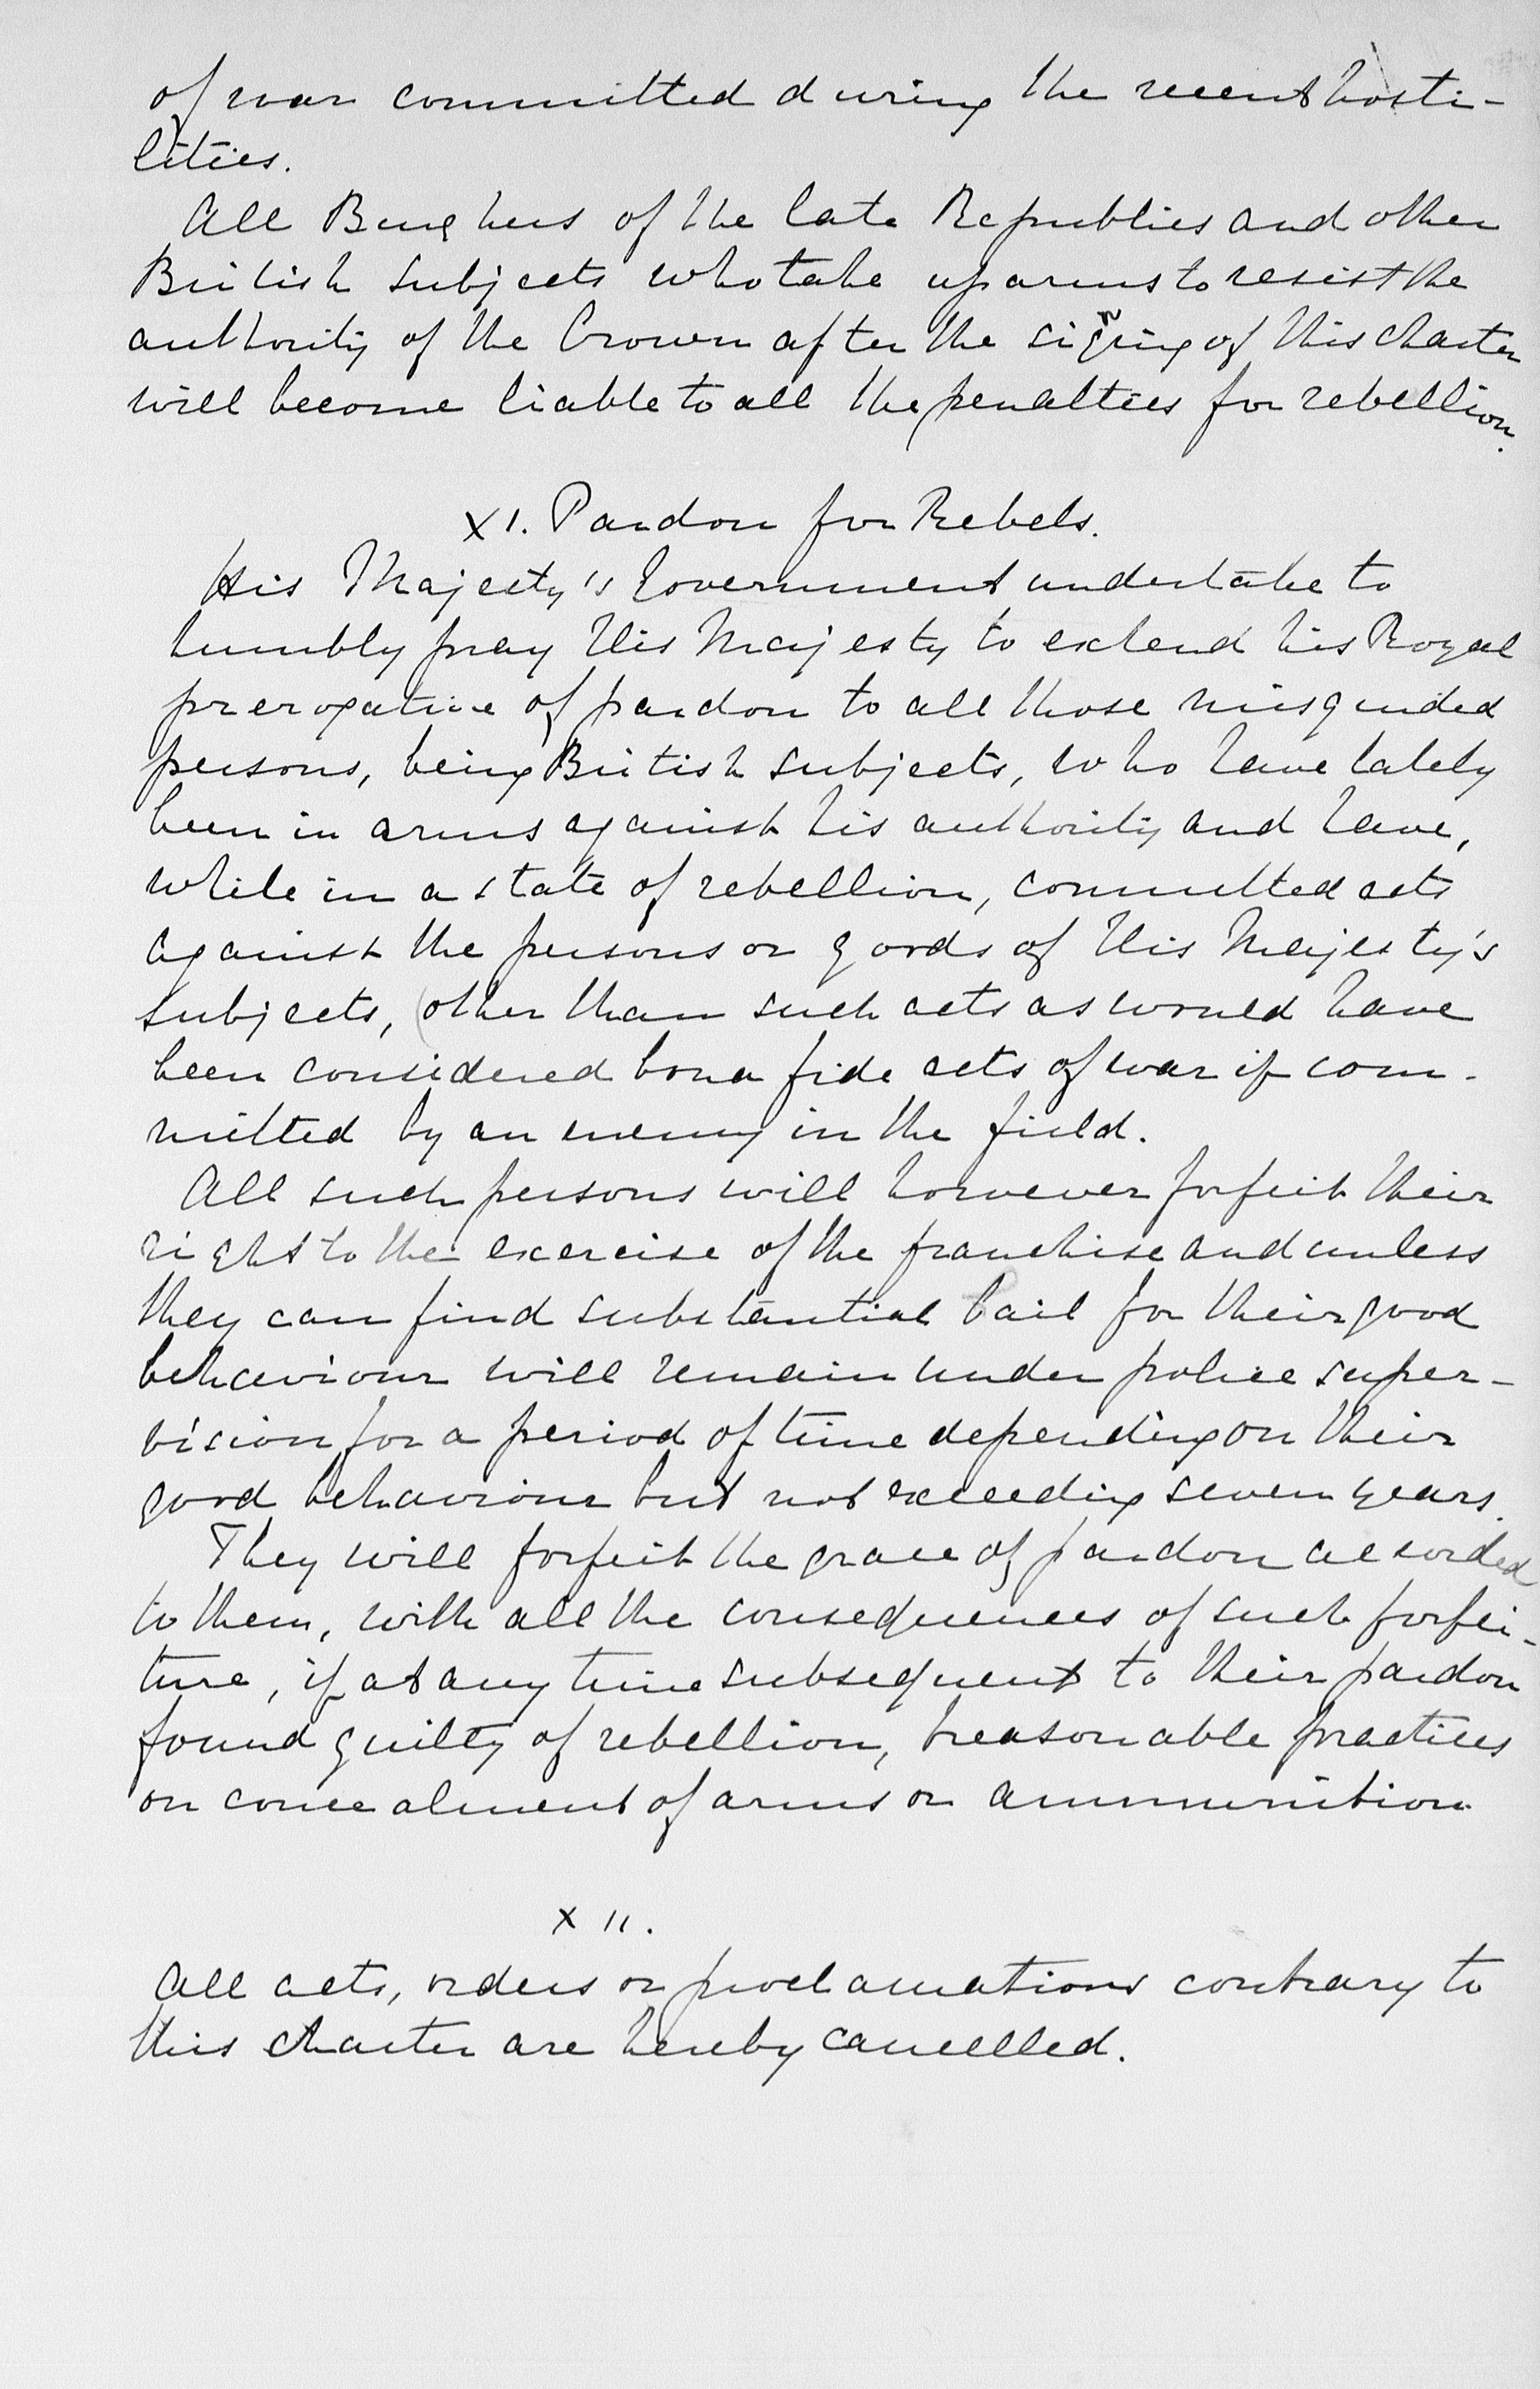 of war committed during the recent hosti-
lities.
All Burghers of the late Republics and other
British subjects who take up arms to resist the
authority of the Crown after the signing of this charter
will become liable to all the penalties for rebellion.
XI. Pardon for Rebels.
His Majesty's Government undertake to
humbly pray His Majesty to extend his Royal
prerogative of pardon to all those misguided
persons, being British subjects, who have lately
been in arms against his authority and have,
while in a state of rebellion, committed acts
against the persons or goods of His Majesty's
subjects, (other than such acts as would have
been considered bona fide acts of war if com-
mitted by an enemy in the field.
All such persons will however forfeit their
right to the exercise of the franchise and unless
they can find substantial bail for their good
behaviour will remain under police super-
vision for a period of time depending on their
good behaviour but not exceeding seven years.
They will forfeit the grace of pardon accorded
to them, with all the consequences of such forfei-
ture, if at any time subsequent to their pardon
found guilty of rebellion, treasonable practices
or concealment of arms or ammunition.
XII.
All acts, orders or proclamations contrary to
this charter are hereby cancelled.